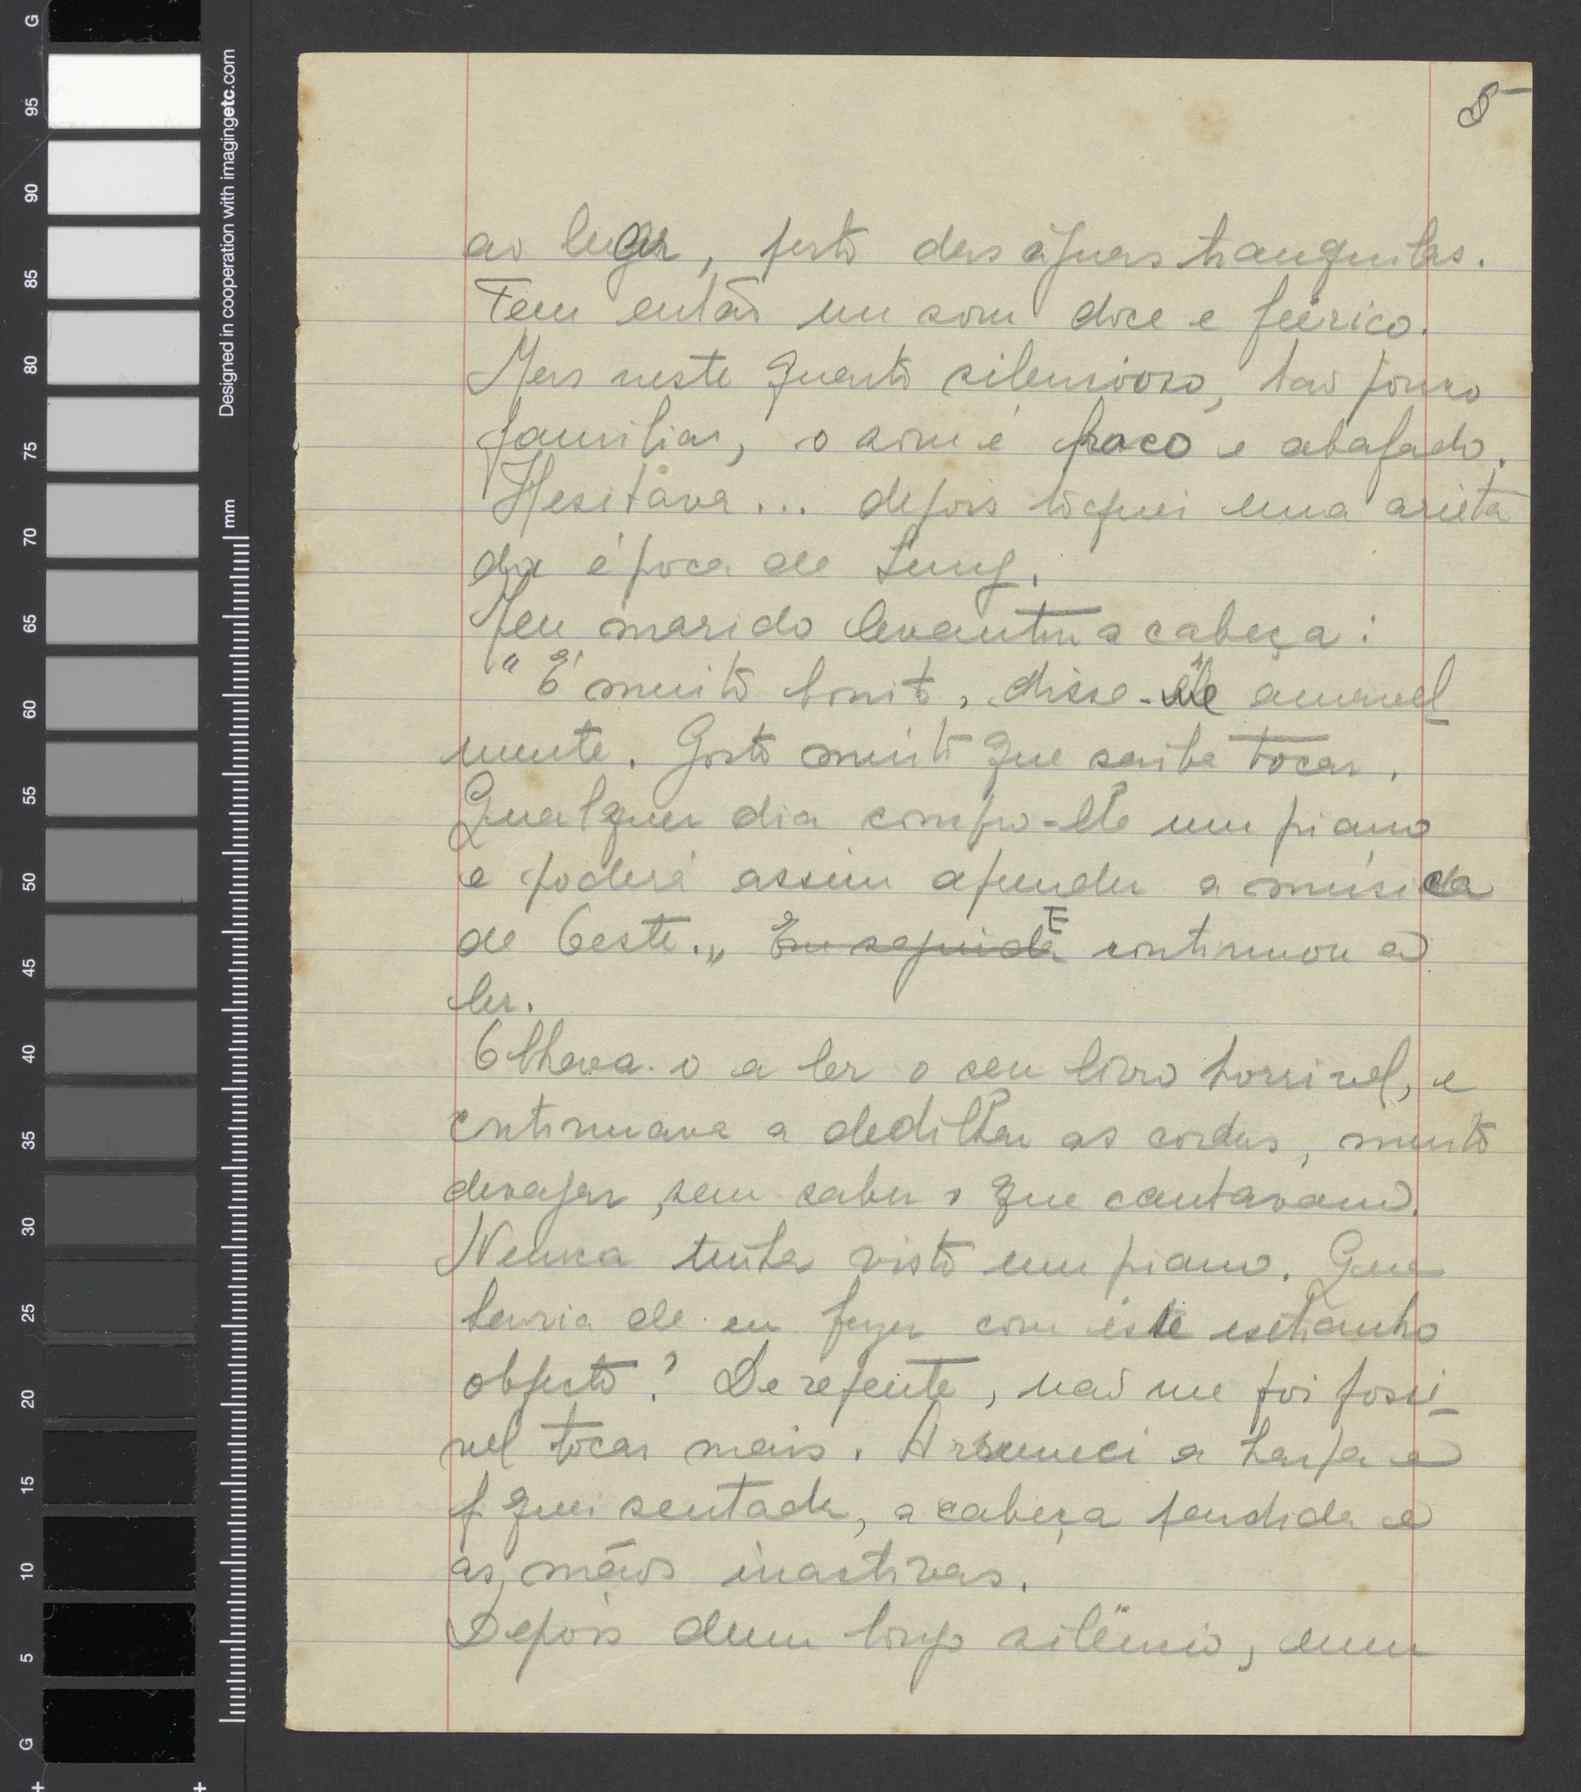 5
ao lugar, perto das águas tranquilas.
Tem então um som doce e feérico.
Mas neste quarto silencioso, tão pouco
familiar, o som é fraco e abafado.
Hesitava... depois toquei uma arieta
da época de Sung.
Meu marido levantou a cabeça:
"É muito bonito, disse-me êle amavel-
mente. Gosto muito que saiba tocar.
Qualquer dia compro-lhe um piano
e poderá assim aprender a música
de Oeste." Em seguida E continuou a
ler.
Olhava-o a ler o seu livro horrivel, e
continuava a dedilhar as cordas, muito
devagar, sem saber o que cantavam.
Nunca tinha visto um piano. Que
havia de eu fazer com êste estranho
objecto? De repente, não me foi possi-
vel tocar mais. Arrumei a harpa e
fiquei sentada, a cabeça pendida e
as mãos inactivas.
Depois dum longo silêncio, num
G
95
90
85
80
75
70
65
60
55
50
45
40
35
30
25
20
15
10
5
G
mm
Designed in cooperation with imagingetc.com